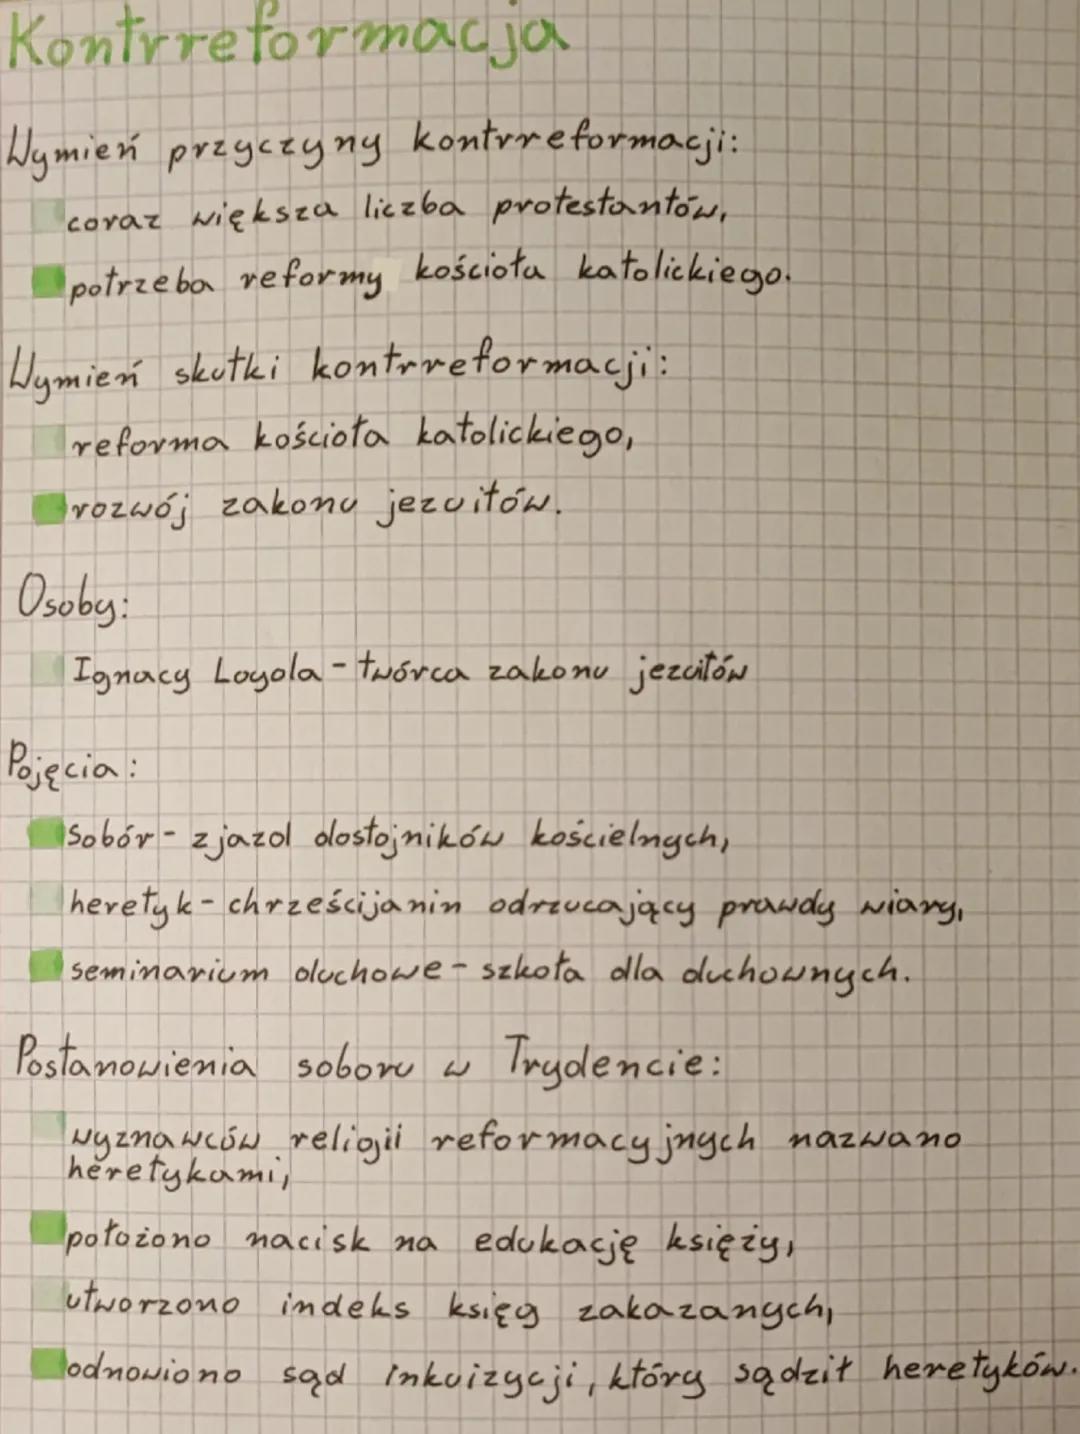 Kontrreformacja
Wymień przyczyny kontrreformacji:
coraz większa liczba protestantów,
potrzeba reformy kościoła katolickiego.
Wymień skutki kontrreformacji:
reforma kościoła katolickiego,
rozwój zakonu jezuitów.
Osoby:
Ignacy Loyola - twórca zakonu jezuitów
Pojęcia:
Sobór - zjazd dostojników kościelnych,
heretyk - chrześcijanin odrzucający prawdy wiary,
seminarium duchowe - szkoła dla duchownych.
Postanowienia soboru w Trydencie:
wyznawców religii reformacyjnych nazwano
heretykami,
położono nacisk na edukację księży,
utworzono indeks księg zakazanych,
odnowiono sąd inkwizycji, który sądził heretyków.